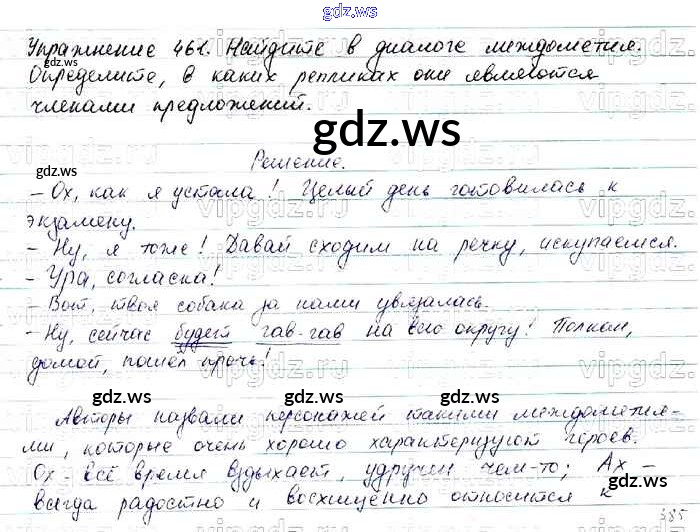 gdz.ws
Упражнение 461. Найдите в диалоге междометия.
Определите, в каких репликах они являются
членами предложений.
gdz.ws
gdz.ws
gdz.ws
Решение.
- Ох, как я устала! Целый день готовилась к
экзамену.
- Ну, я тоже! Давай сходим на речку, искупаемся.
- Ура, согласна!
- Вот, твоя собака за нами увязалась.
- Ну, сейчас будет гав-гав на всю округу! Полкан,
домой, пошёл прочь!
gdz.ws gdz.ws gdz.ws
Авторы назвали персонажей такими междометия-
ми, которые очень хорошо характеризуют героев.
Ох - всё время вздыхает, удручён чем-то; Ах -
всегда радостно и восхищенно относится к
gdz.ws
gdz.ws
385
vipgdz.ru